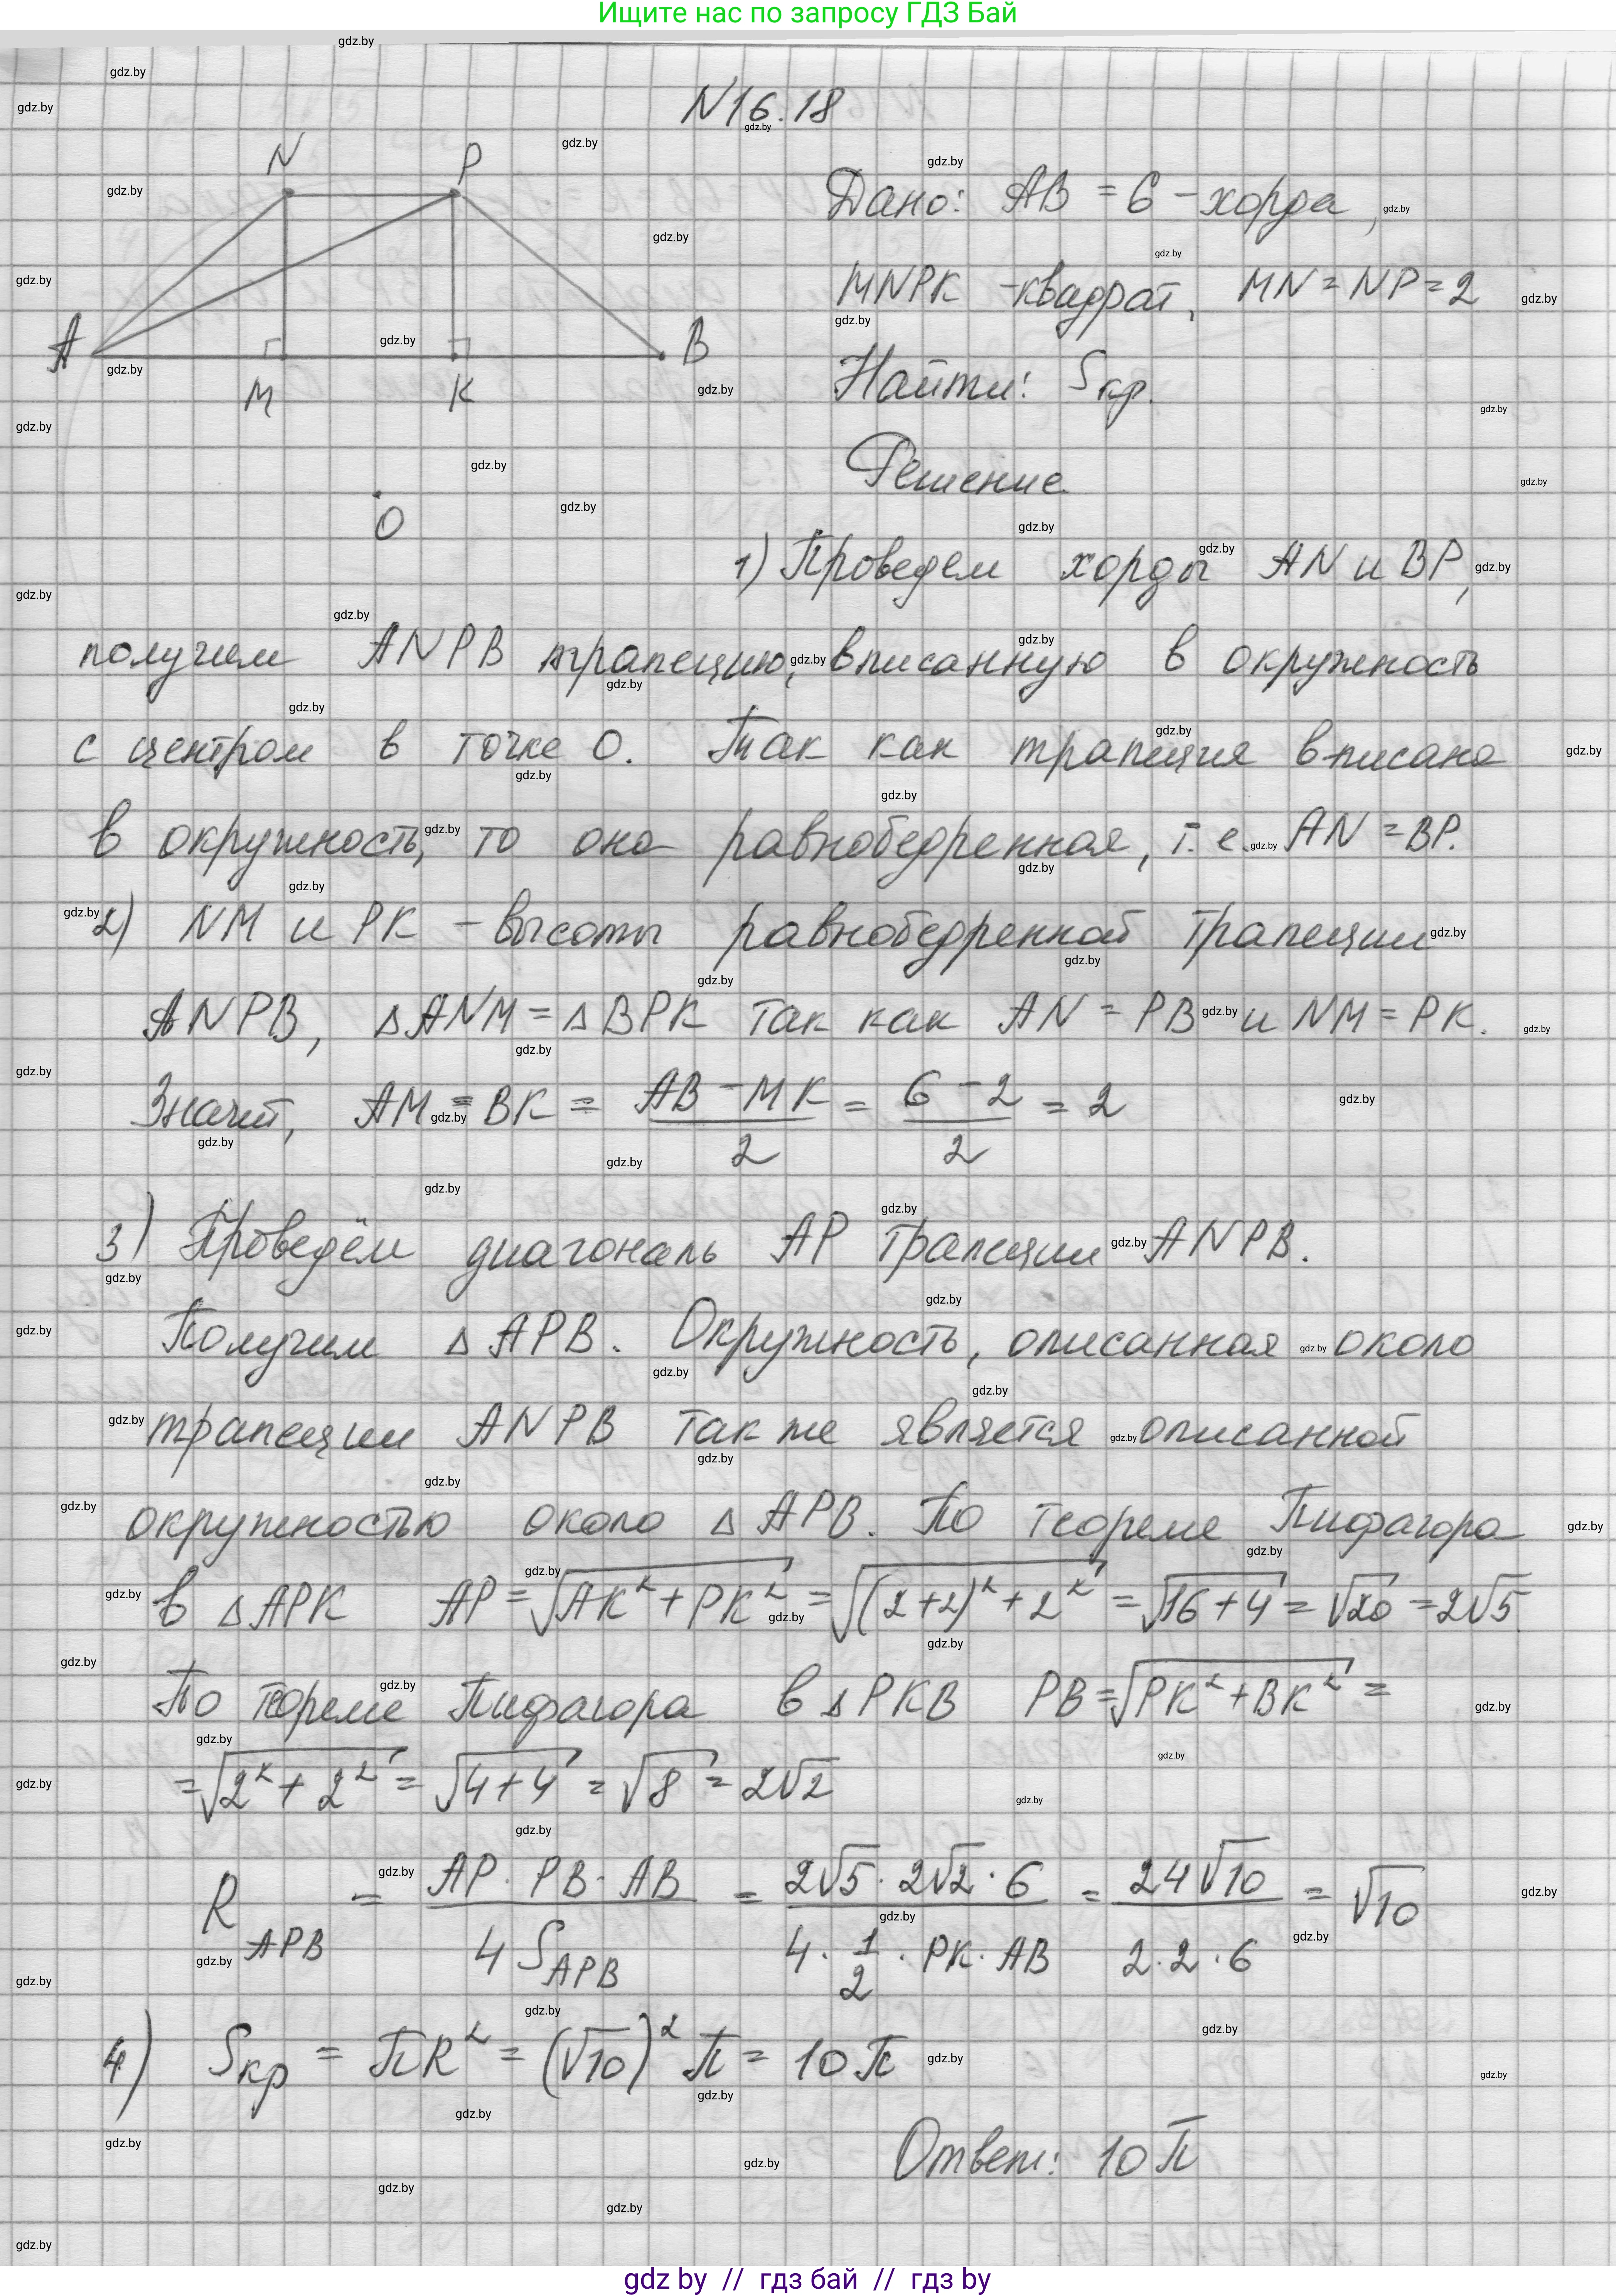 Ищите нас по запросу ГДЗ Бай
N16.18
N P
A M K B
O
Дано: AB = 6 - хорда,
MNPK - квадрат, MN = NP = 2
Найти: Sкр.
Решение
1) Проведем хорды AN и BP,
получим ANPB трапецию, вписанную в окружность
с центром в точке O. Так как трапеция вписана
в окружность, то она равнобедренная, т.е. AN = BP.
2) NM и PK - высоты равнобедренной трапеции
ANPB, △ANM = △BPK так как AN = PB и NM = PK.
Значит, AM = BK = (AB - MK)/2 = (6 - 2)/2 = 2
3) Проведём диагональ AP трапеции ANPB.
Получим △APB. Окружность, описанная около
трапеции ANPB также является описанной
окружностью около △APB. По теореме Пифагора
в △APK AP = √(AK² + PK²) = √((2+2)² + 2²) = √(16+4) = √20 = 2√5
По теореме Пифагора в △PKB PB = √(PK² + BK²) =
= √(2² + 2²) = √(4+4) = √8 = 2√2
R APB = (AP · PB · AB)/(4 S APB) = (2√5 · 2√2 · 6)/(4 · 1/2 · PK · AB) = (24√10)/(2·2·6) = √10
4) Sкр = πR² = (√10)² π = 10π
Ответ: 10π
gdz by // гдз бай // гдз by